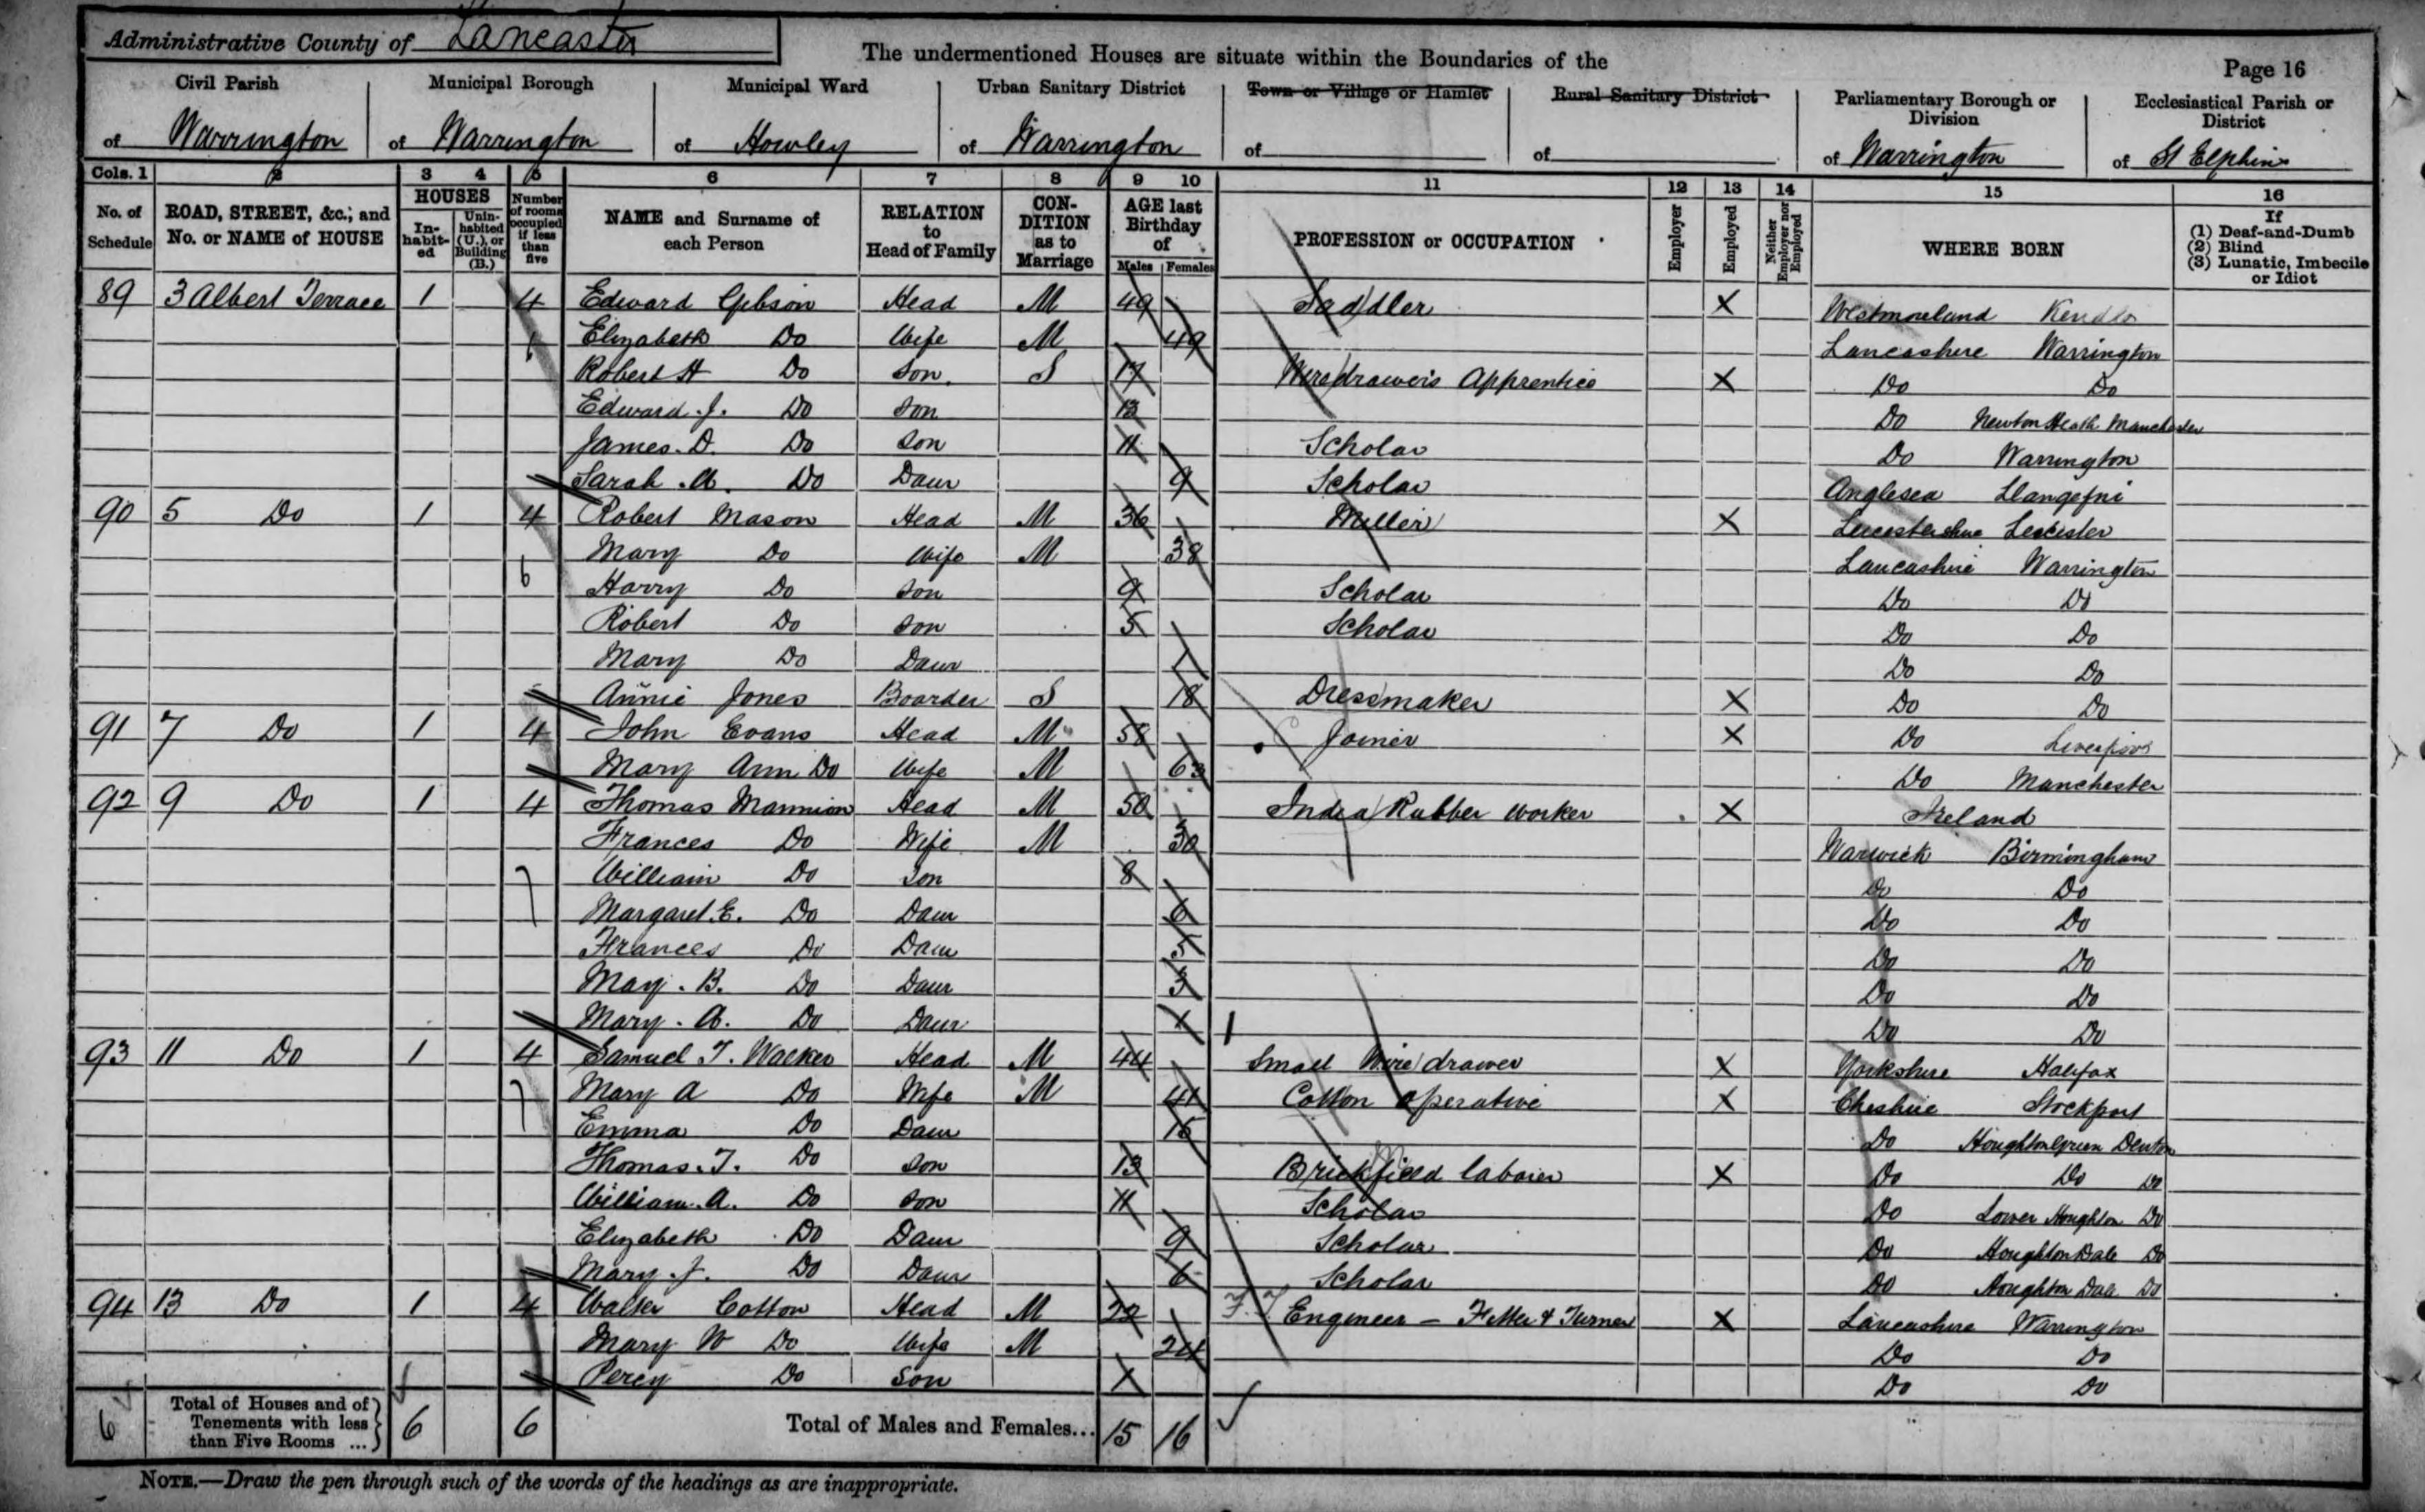 Administrative County of Lancaster
The undermentioned Houses are situate within the Boundaries of the
Page 16
Civil Parish Municipal Borough Municipal Ward Urban Sanitary District Town or Village or Hamlet Rural Sanitary District Parliamentary Borough or Division Ecclesiastical Parish or District
of Warrington of Warrington of Howley of Warrington of of of Warrington of St Elphins
Cols. 1 2 3 4 5 6 7 8 9 10 11 12 13 14 15 16
No. of Schedule ROAD, STREET, &c., and No. or NAME of HOUSE HOUSES In-habit-ed Unin-habited (U.), or Building (B.) Number of rooms occupied if less than five NAME and Surname of each Person RELATION to Head of Family CON-DITION as to Marriage AGE last Birthday of Males Females PROFESSION or OCCUPATION Employer Employed Neither Employer nor Employed WHERE BORN If (1) Deaf-and-Dumb (2) Blind (3) Lunatic, Imbecile or Idiot
89 3 Albert Terrace 1 4 Edward Gibson Head M 49 Saddler X Westmoreland
6 Elizabeth Do Wife M 49 Lancashire Warrington
Robert H Do Son. S 17 Wiredrawers Apprentice X Do Do
Edward. J. Do Son 13 Do Newton Heath Manchester
James. D. Do Son 11 Scholar Do Warrington
Sarah. A. Do Daur 9 Scholar Anglesea Llangefni
90 5 Do 1 4 Robert Mason Head M 36 Miller X Leicestershire Leicester
Mary Do Wife M 38 Lancashire Warrington
6 Harry Do Son 9 Scholar Do Do
Robert Do Son 5 Scholar Do Do
Mary Do Daur 1 Do Do
Annie Jones Boarder S 18 Dressmaker X Do Do
91 7 Do 1 4 John Evans Head M 58 Joiner X Do Liverpool
Mary Ann Do Wife M 63 Do Manchester
92 9 Do 1 4 Thomas Mannion Head M 50 India Rubber worker X Ireland
Frances Do Wife M 30 Warwick Birmingham
7 William Do Son 8 Do Do
Margaret. E. Do Daur 6 Do Do
Frances Do Daur 5 Do Do
May. B. Do Daur 3 Do Do
Mary. A. Do Daur 1 Do Do
93 11 Do 1 4 Samuel T. Walker Head M 44 Small Wire drawer X Yorkshire Halifax
7 Mary A Do Wife M 41 Cotton operative X Cheshire Stockport
Emma Do Daur 15 Do Houghton Green Denton
Thomas. T. Do Son 13 Brickfield laborer X Do Do Do
William. A. Do Son 11 Scholar Do Lower Houghton Do
Elizabeth Do Daur 9 Scholar Do Houghton Dale Do
Mary. J. Do Daur 6 Scholar Do Houghton Dale Do
94 13 Do 1 4 Walter Cotton Head M 22 F. T Engineer - Fitter & Turner X Lancashire Warrington
Mary W Do Wife M 24 Do Do
Percy Do Son 1 Do Do
6 Total of Houses and of Tenements with less than Five Rooms ... 6 6 Total of Males and Females... 15 16
NOTE.—Draw the pen through such of the words of the headings as are inappropriate.